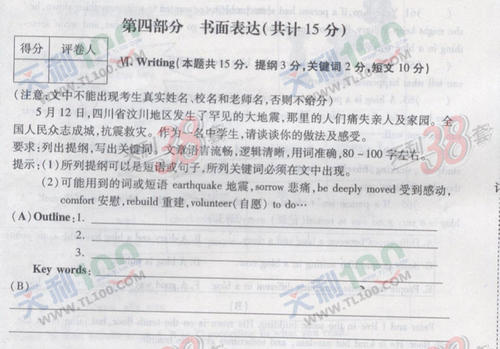 第四部分 书面表达(共计15分)
得分 评卷人
Ⅵ. Writing(本题共15分,提纲3分,关键词2分,短文10分)
(注意:文中不能出现考生真实姓名、校名和老师名,否则不给分)
5月12日,四川省汶川地区发生了罕见的大地震,那里的人们痛失亲人及家园。全
国人民众志成城,抗震救灾。作为一名中学生,请谈谈你的做法及感受。
要求:列出提纲,写出关键词。文章语言流畅,逻辑清晰,用词准确,80-100字左右。
提示:(1)所列提纲可以是短语或句子,所列关键词必须在文中出现。
(2)可能用到的词或短语 earthquake 地震,sorrow 悲痛,be deeply moved 受到感动,
comfort 安慰,rebuild 重建,volunteer(自愿) to do…
(A)Outline:1.
2.
3.
Key words:
(B)
天利100
www.TL100.COM
天利38套